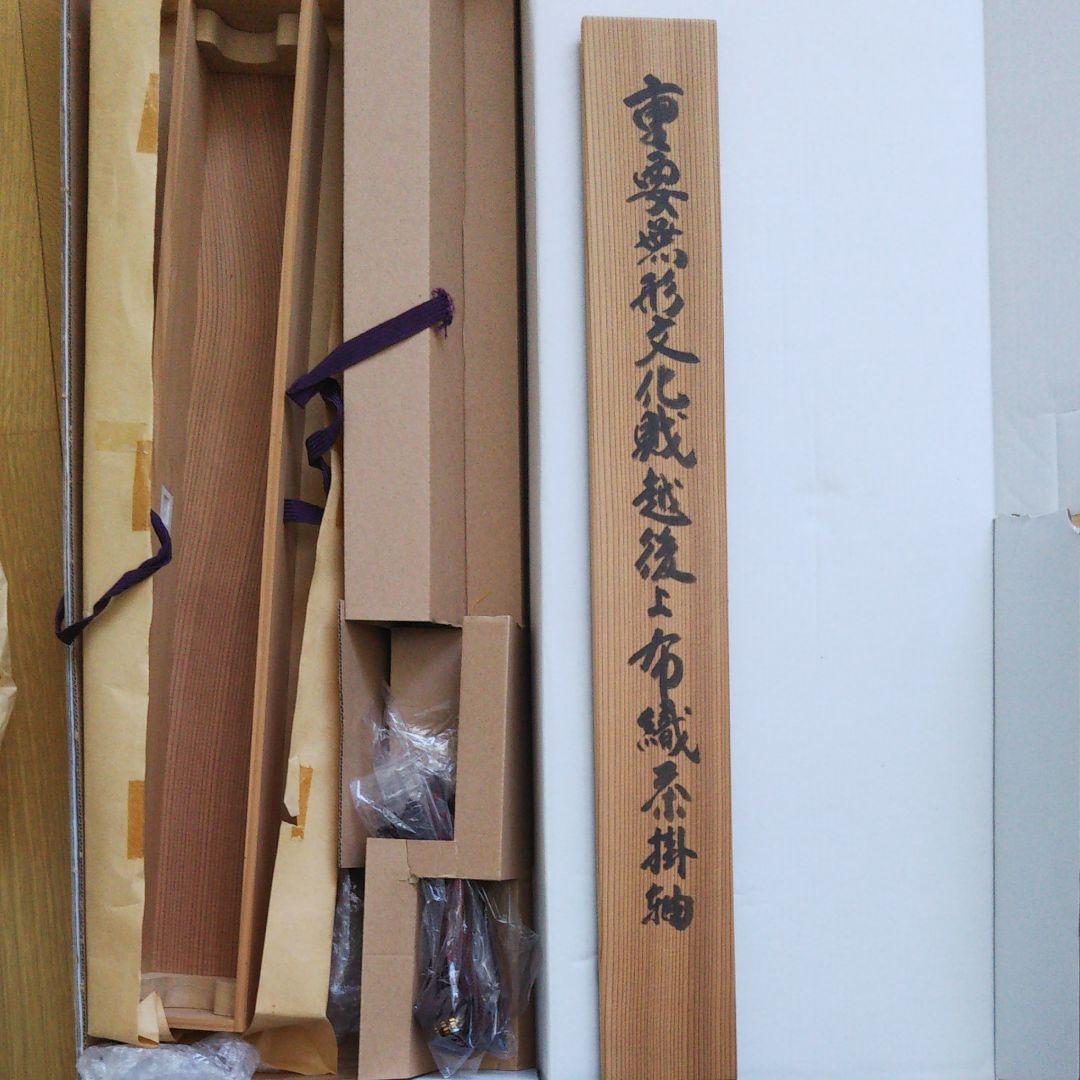 重要無形文化財越後上布織茶掛軸